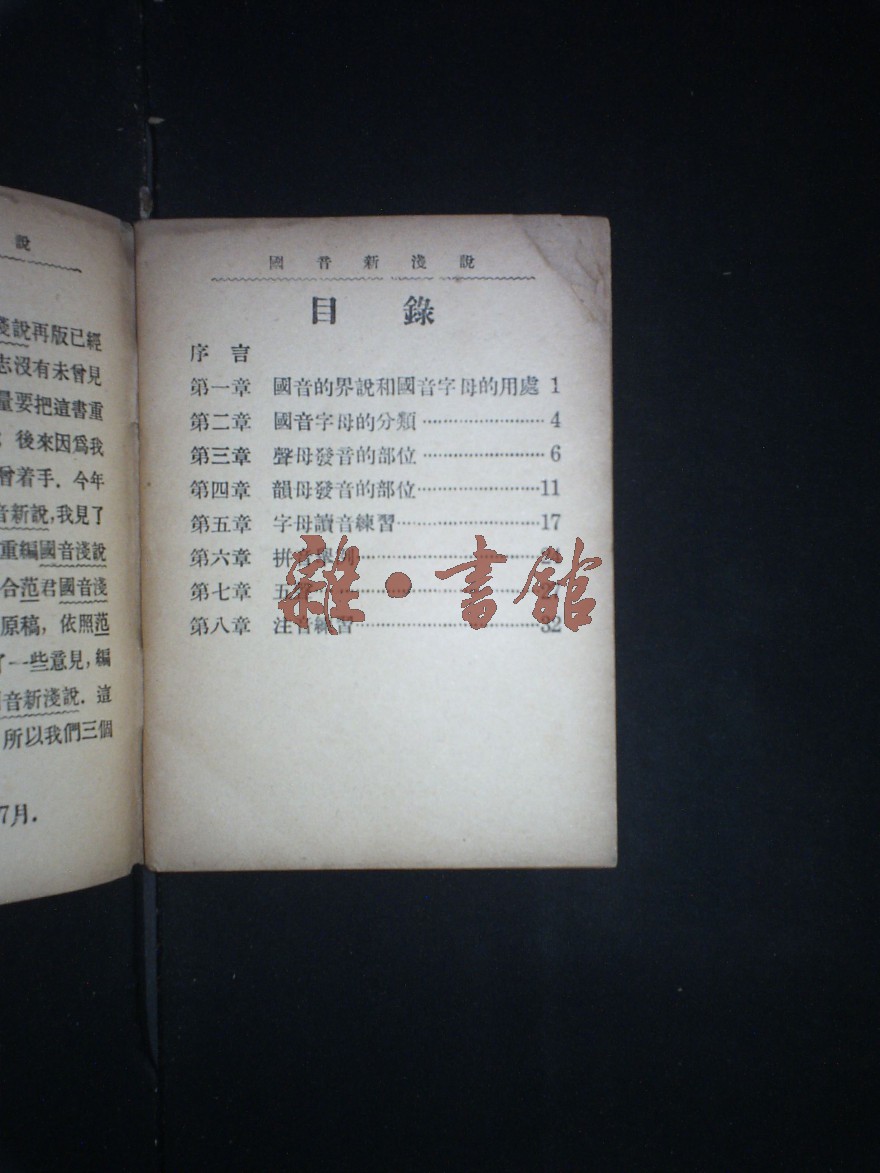 說
淺說再版已經
志沒有未曾見
量要把這書重
後來因爲我
曾着手．今年
音新說，我見了
重編國音淺說
合范君國音淺
原稿，依照范
了一些意見，編
國音新淺說．這
所以我們三個
7月．
國音新淺說
目錄
序言
第一章 國音的界說和國音字母的用處 1
第二章 國音字母的分類 …………………… 4
第三章 聲母發音的部位 …………………… 6
第四章 韻母發音的部位 …………………… 11
第五章 字母讀音練習 …………………… 17
第六章 拼音舉例 ……………………
第七章 五聲 …………………… 27
第八章 注音練習 …………………… 32
雜·書館